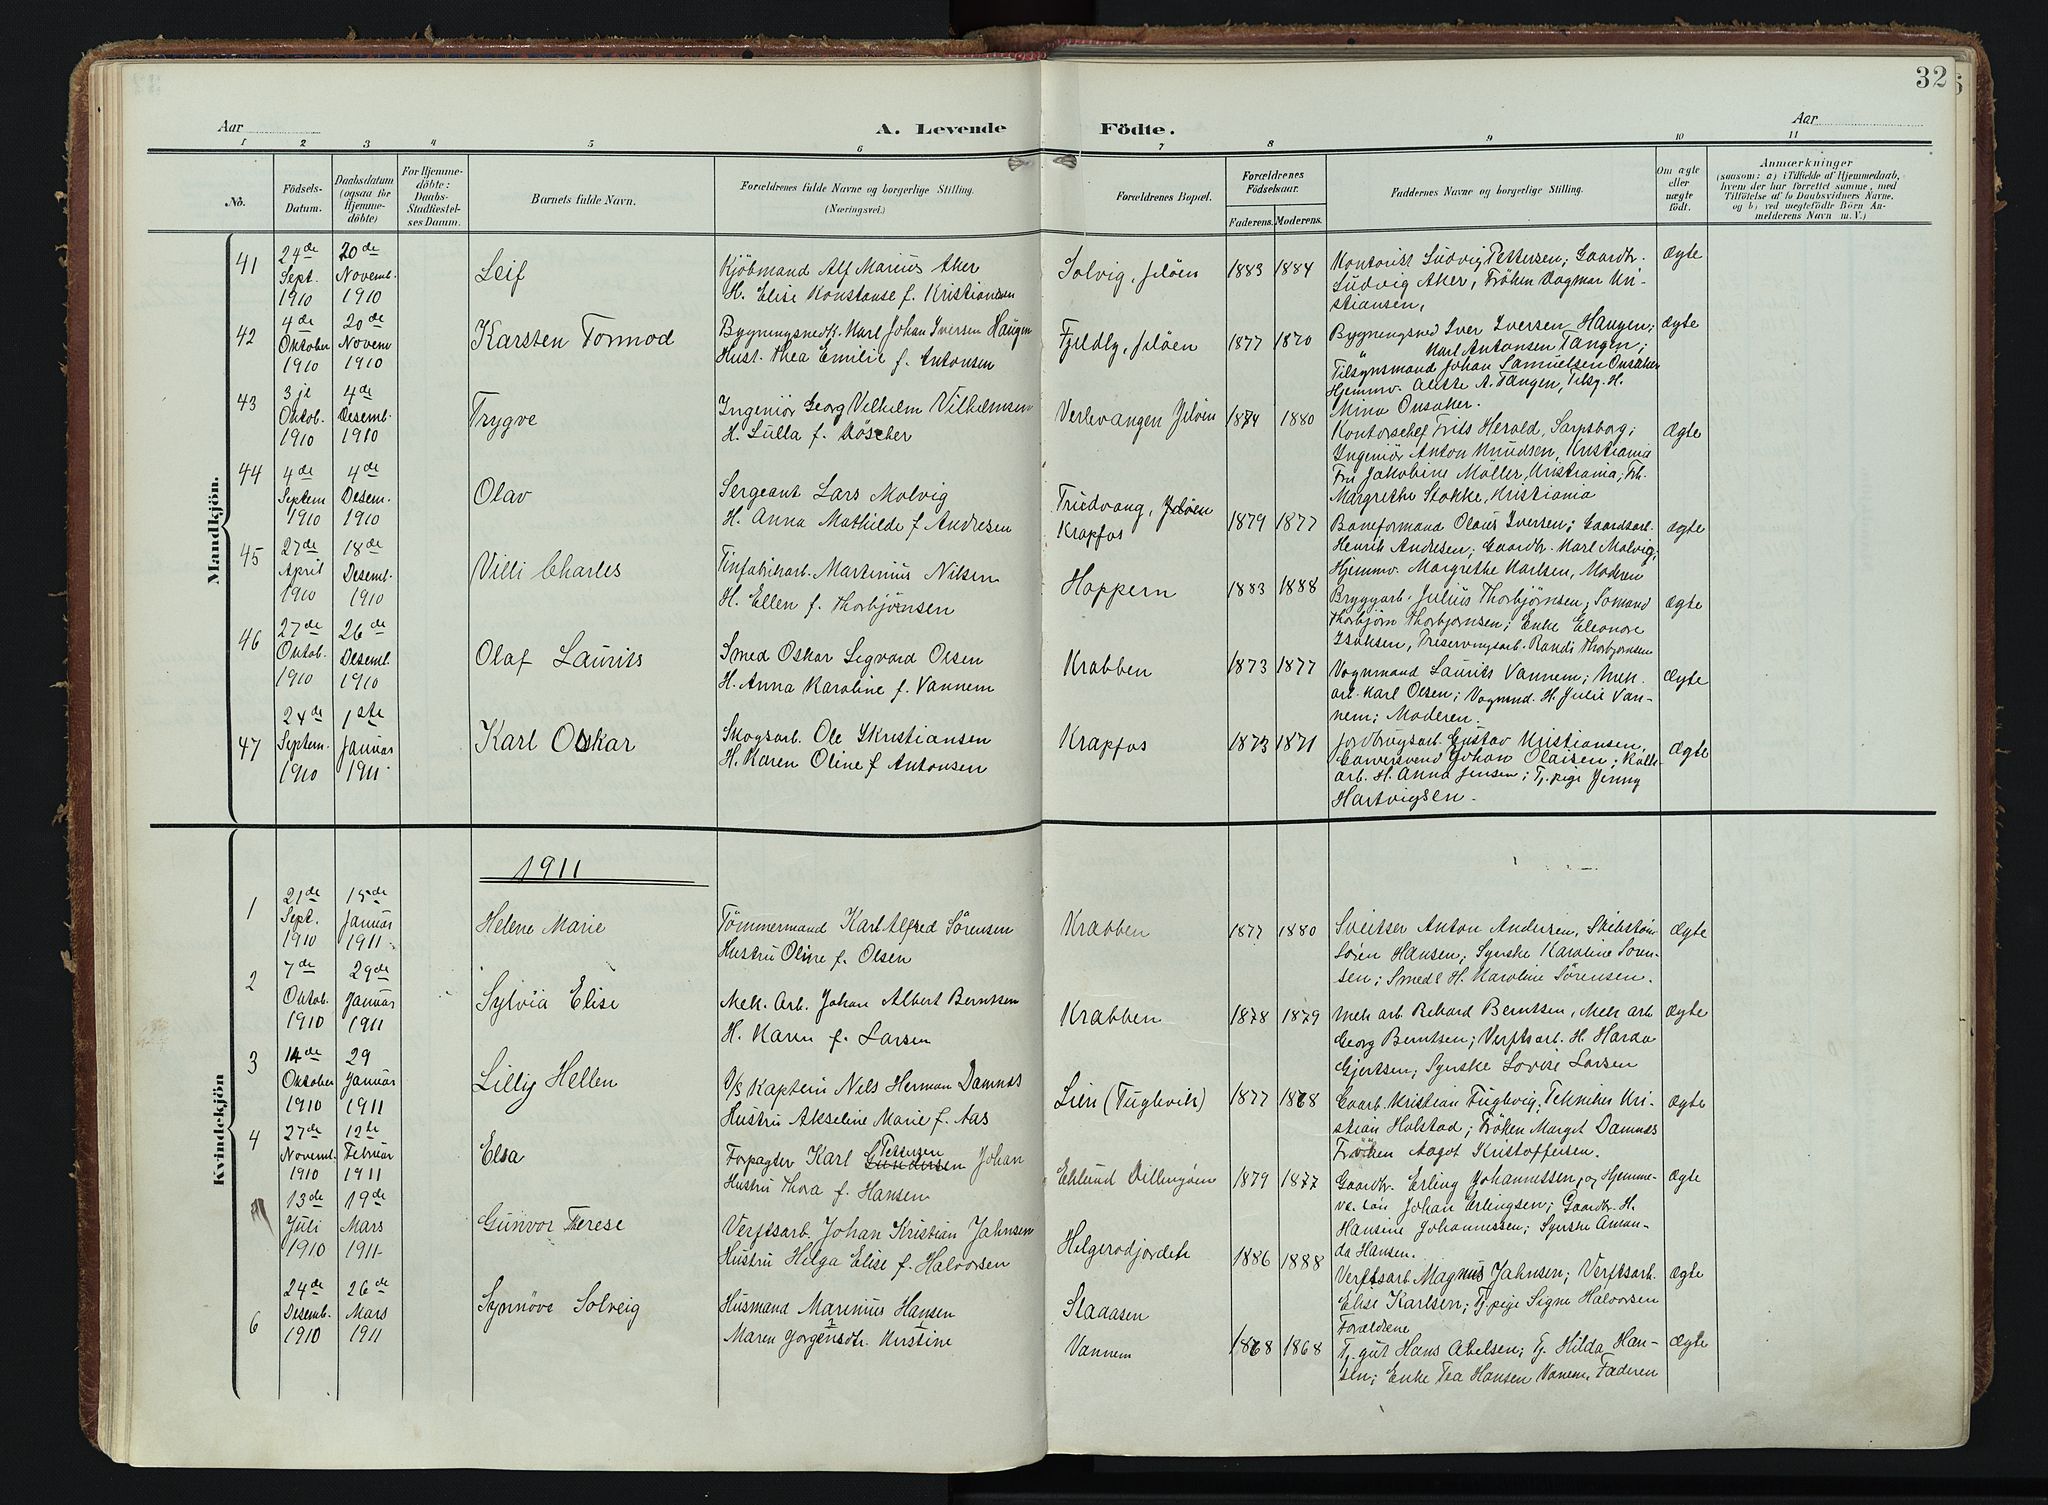 32
Aar
A. Levende Födte.
Aar
1 2 3 4 5 6 7 8 9 10 11
No.
Födsels-Datum.
Daabsdatum (ogsaa for Hjemmedöbte)
For Hjemmedöbte: Daabs-Stadfæstelses Datum.
Barnets fulde Navn.
Forældrenes fulde Navne og borgerlige Stilling. (Næringsvei.)
Forældrenes Bopæl.
Forældrenes Födselsaar.
Faderens. Moderens.
Faddernes Navne og borgerlige Stilling.
Om ægte eller uægte födt.
Anmærkninger
(saasom: a) i Tilfælde af Hjemmedaab, hvem der har forrettet samme, med Tilföielse af to Daabsvidners Navne, og b) ved uægtefödte Börn Anmelderens Navn m. V.)
Mandkjön.
41 24de Sept. 1910 20de Novemb. 1910 Leif
Kjöbmand Alf Marius Aker
H. Elise Konstanse f. Kristiansen
Solvig, Jelöen 1883 1884
Kontorist Ludvig Pettersen; Gaardbr.
Ludvig Aker, Fröken Dagmar Kri-
stiansen,
Ægte
42 4de Oktober 1910 20de Novem 1910 Karsten Tormod
Bygningsnedk. Karl Johan Iversen Haugen
Hust. Thea Emilie f. Antonsen
Fjeldly, Jelöen 1877 1870
Bygningsned Iver Iversen Haugen;
Karl Antonsen Tangen;
Tilsynsmand Johan Samuelsen Onsaker
Hjemmv. Aleste A. Tangen, Tilsg. H.
Mina Onsaker.
Ægte
43 3je Oktob. 1910 4de Desemb. 1910 Trygve
Ingeniör Georg Vilhelm Vilhelmsen
H. Lulla f. Röscher
Verlevangen Jelöen 1874 1880
Kontorschef Frits Herold, Sarpsborg;
Ingeniör Anton Knudsen, Kristiania
Fru Jakobine Möller, Kristiania; Frk.
Margrethe Stokke, Kristiania
Ægte
44 4de Septem 1910 4de Desem. 1910 Olav
Sergeant Lars Molvig
H. Anna Mathilde f. Andresen
Fredvang, Jelöen
Krapfos 1879 1877
Baneformand Olaus Iversen; Gaardsarb.
Henrik Andresen; Gaardbr. Karl Molvig;
Hjemmv. Margrethe Karlsen, Moderen
Ægte
45 27de April 1910 18de Desemb. 1910 Villi Charles
Tinfabrikarb. Martinius Nilsen
H. Ellen f. Thorbjørnsen
Hoppern 1883 1888
Bryggarb. Julius Thorbjörnsen, Sömand
Thorbjörn Thorbjørnsen; Enke Eleonore
Isaksen, Preservingsarb. Randi Thorbjørnsen
Ægte
46 27de Oktob. 1910 26de Desemb. 1910 Olaf Laurits
Smed Oskar Sigvard Olsen
H. Anna Karoline f. Vannem
Krabben 1873 1877
Vognmand Laurits Vannem; Mek.
arb. Karl Olsen; Vognmd. H. Julie Van-
nem; Moderen.
Ægte
47 24de Septem. 1910 1ste Januar 1911. Karl Oskar
Skogsarb. Ole Kristiansen
H. Karen Oline f Antonsen
Krapfos 1873 1871
Jordbrugsarb. Gustav Kristiansen,
Garversvend Johan Olaisen; Kulle-
arb. H. Anna Jensen; Tj. pige Jenny
Hartvigsen.
Ægte
Kvindekjön
1911
1 21de Sept. 1910 15de Januar 1911. Helene Marie
Tömmermand Karl Alfred Sörensen
Hustru Oline f. Olsen
Krabben 1877 1880
Sveitser Anton Andersen, Skibstöm
Sören Hansen; Synske Karoline Sören-
sen; Smeds H. Karoline Sörensen.
Ægte
2 7de Oktob. 1910 29de Januar 1911 Sylvia Elise
Mek. Arb. Johan Albert Berntsen
H. Karen f. Larsen
Krabben 1878 1879
Mek arb Rikard Berntsen, Mek arb
Georg Berntsen; Verftsarb. H. Harda
Gjertsen; Synske Lovise Larsen
Ægte
3 14de Oktober 1910 29 Januar 1911 Lilly Hellen
D/S Kaptein Nils Herman Damnæs
Hustru Akseline Marie f. Aas
Lien (Fuglevik) 1877 1868
Gaarb. Kristian Fuglevig; Tekniker Kri-
stian Holstad; Fröken Margit Damnæs
Fröken Aagot Kristoffersen.
Ægte
4 27de Novemb. 1910 12te Februar 1911 Elsa
Forpagter Karl Gundersen Pettersen Johan
Hustru Thora f. Hansen
Eklund Dillingöen 1879 1877
Gaardbr. Erling Johannessen, og Hjemme-
væ. sön Johan Erlingsen; Gaardbr. H.
Hansine Johannessen; Synske Aman-
da Hansen.
Ægte
13de Juli 1910 19de Mars 1911. Gunvor Therese
Verftsarb. Johan Kristian Jahnsen
Hustru Helga Elise f. Halvorsen
Helgerodjordet 1886 1888
Verftsarb Magnus Jahnsen; Verftsarb.
Elise Karlsen; Tj. pige Signe Halvorsen
Forældrene
Ægte
6 24de Desemb. 1910 26de Mars 1911 Synnöve Solveig
Husmand Marinius Hansen
Maren Jorgensdtr. Kirstine
Staaasen
Vannem 1868 1868
Tj. gut Hans Abelsen; Tj. Hilda Han-
sen; Enke Tea Hansen Vanem, Faderen
Ægte